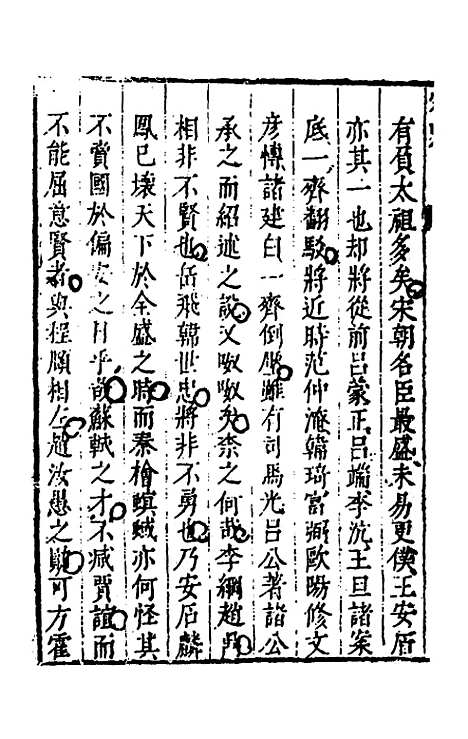 有負太祖多矣宋朝名臣最盛未易更僕王安石
亦其一也却將從前呂蒙正呂端李沆王旦諸案
底一齊翻駁將近時范仲淹韓琦富弼歐陽修文
彥博諸建白一齊倒壓雖有司馬光呂公著諸公
承之而紹述之說又呶呶矣柰之何哉李綱趙鼎
相非不賢也岳飛韓世忠將非不勇也乃安石麟
鳳已壞天下於全盛之時而秦檜螟螣亦何怪其
不賣國於偏安之日乎蘇軾之才不減賈誼而
不能屈意賢者與程頤相左趙汝愚之勲可方霍